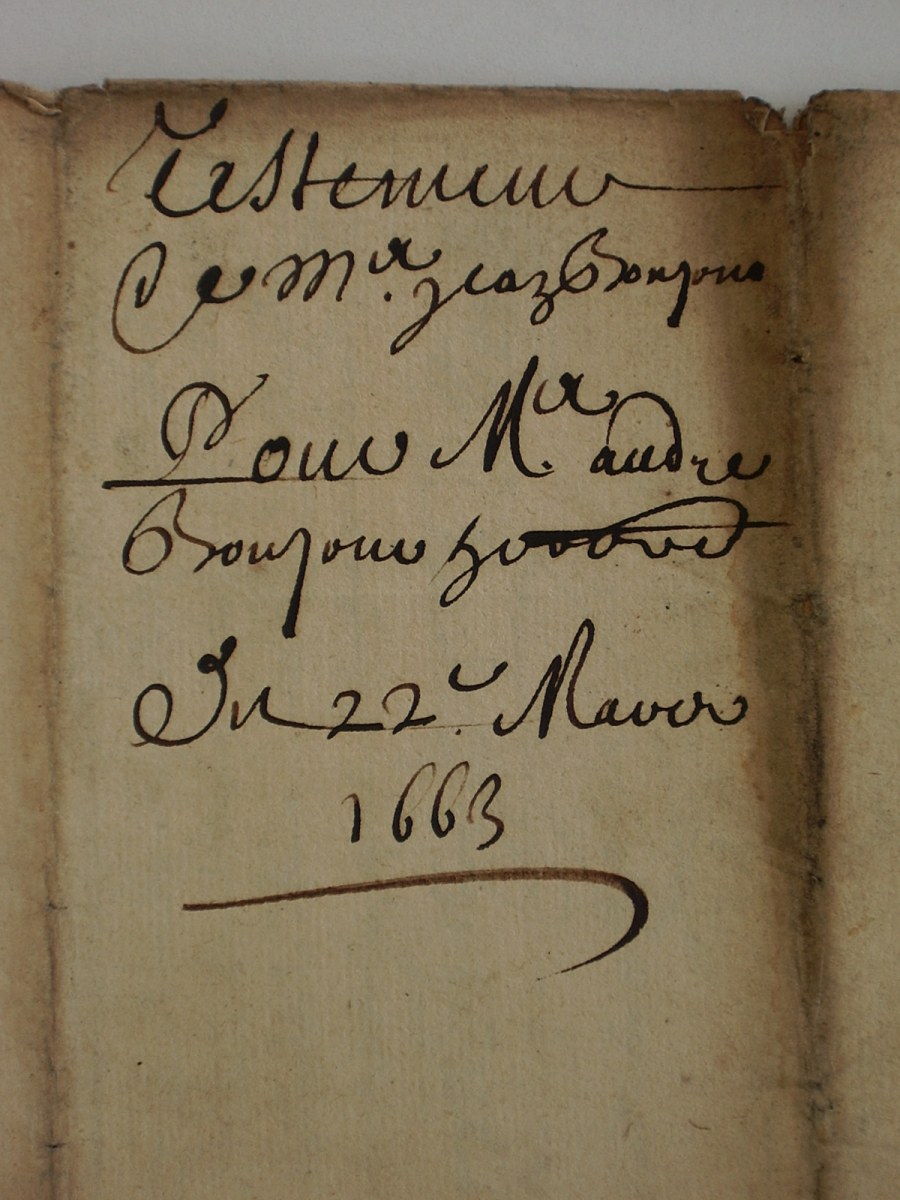 Testement
De Mr. Jean Bonjour
Pour Mr. andre
Bonjour
Du 22e. Mars
1663